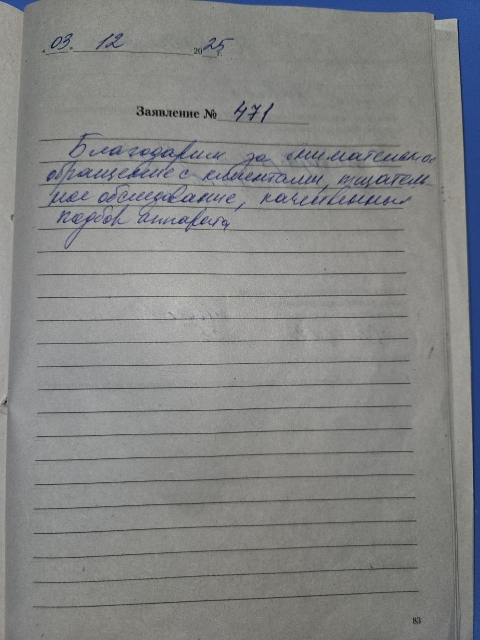 03. 12 2025 г.
Заявление № 471
Благодарим за внимательное
обращение с клиентами, тщатель-
ное обследование, качественный
подбор аппарата
83